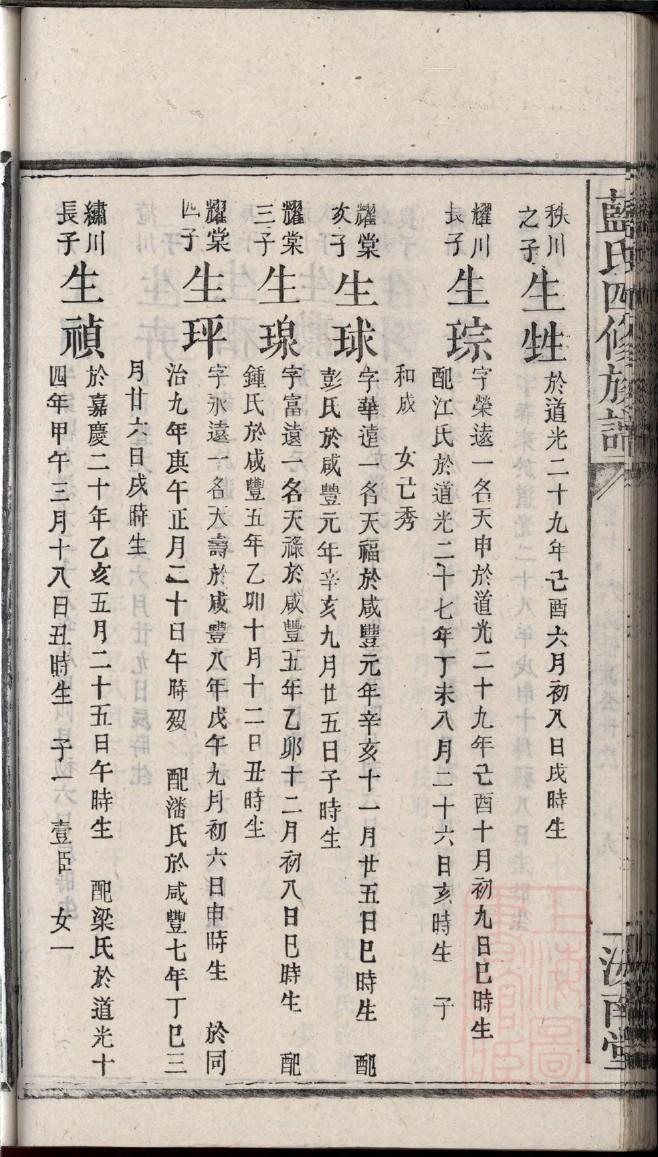 藍氏四修族譜
汝南堂
秩川之子 生甡 於道光二十九年己酉六月初八日戌時生
耀川長子 生琮 字榮遠一名天申於道光二十九年己酉十月初九日巳時生
配江氏於道光二十七年丁未八月二十六日亥時生 子
和成 女己秀
耀棠次子 生球 字華遠一名天福於咸豐元年辛亥十一月廿五日巳時生 配
彭氏於咸豐元年辛亥九月廿五日子時生
耀棠三子 生琅 字富遠一名天祿於咸豐五年乙卯十二月初八日巳時生 配
鍾氏於咸豐五年乙卯十月十二日丑時生
耀棠四子 生玶 字永遠一名大壽於咸豐八年戊午九月初六日申時生 於同
治九年庚午正月二十日午時歿 配潘氏於咸豐七年丁巳三
月廿六日戌時生
繡川長子 生禎 於嘉慶二十年乙亥五月二十五日午時生 配梁氏於道光十
四年甲午三月十八日丑時生 子一 壹臣 女一